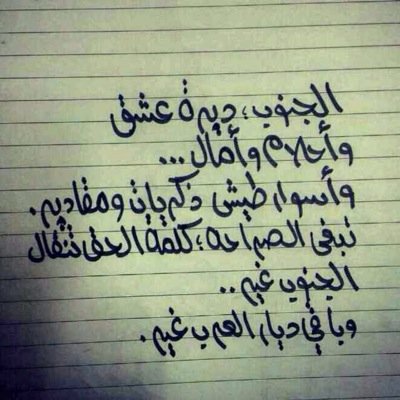 الجنوب، ديرة عشق
وأحلام وأمال...
وأسوار طيش ذكريات ومقادير.
تبغى الصراحه، كلمة الحق تنقال
الجنوب غير..
وباقي ديار العرب غير.